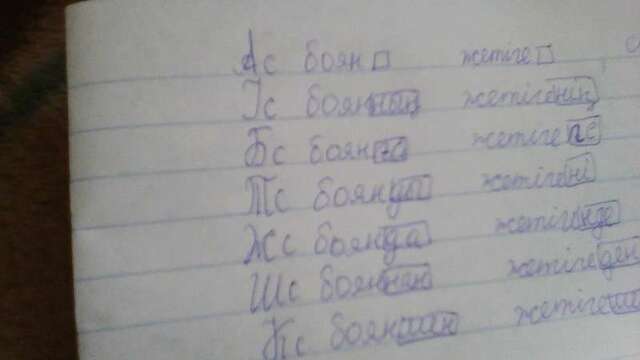 Ас боян□ жетіге□
Іс боянның жетігенің
Бс боянға жетіге
Тс боянды жетігені
Жс боянда жетігенде
Шс бояннан жетігеден
Кс боян жетіге